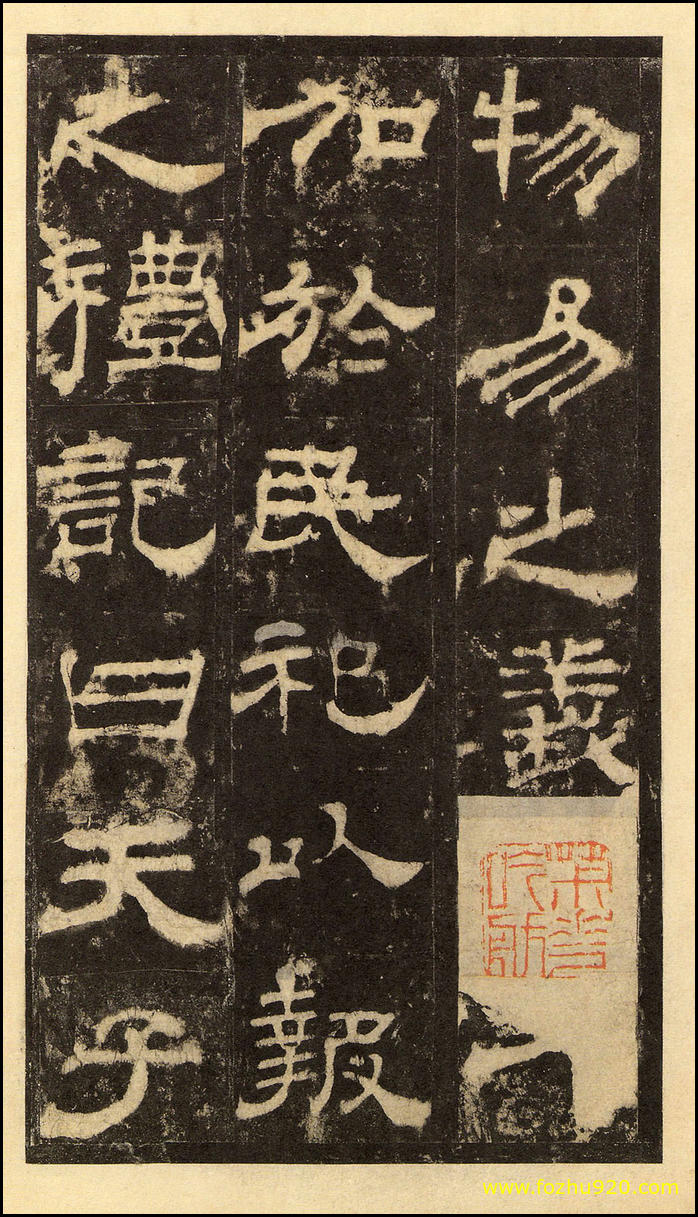 物易之義
加於民祀以報
之禮記曰天子
www.fozhu920.com